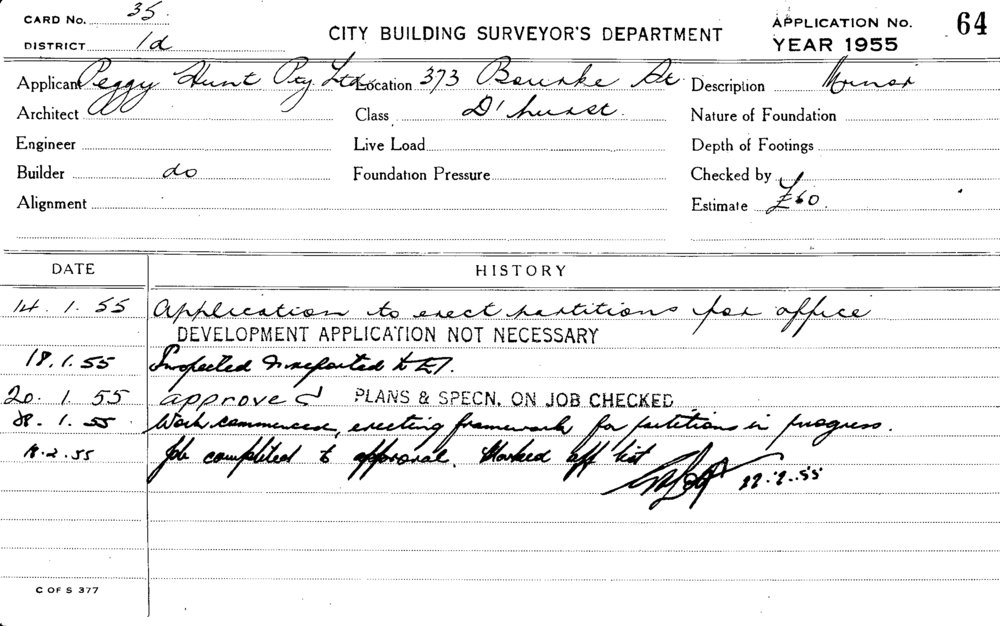 CARD No. 35. CITY BUILDING SURVEYOR'S DEPARTMENT APPLICATION No. 64
DISTRICT 1d YEAR 1955
Applicant Peggy Hunt Pty. Ltd. Location 373 Bourke St. Description Minor
Architect Class D'hurst. Nature of Foundation
Engineer Live Load Depth of Footings
Builder do Foundation Pressure Checked by
Alignment Estimate £60.
DATE HISTORY
14.1.55 Application to erect partitions for office
DEVELOPMENT APPLICATION NOT NECESSARY
18.1.55 Inspected & reported to
20.1.55 approved PLANS & SPECN. ON JOB CHECKED
28.1.55 Work commenced, erecting framework for partitions in progress.
18.2.55 Job completed to approval. Marked off list
22.2.55
C OF S 377